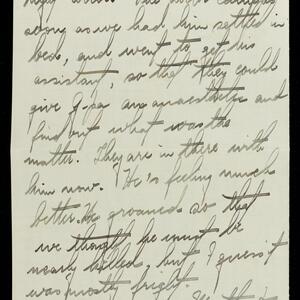 along as we had him settled in
bed, and went to get his
assistant, so that they could
give g-pa an anaesthetic and
find out what was the
matter. They are in there with
him now. He's feeling much
better. He groaned so that
we thought he must be
nearly killed, but I guess it
was mostly fright.